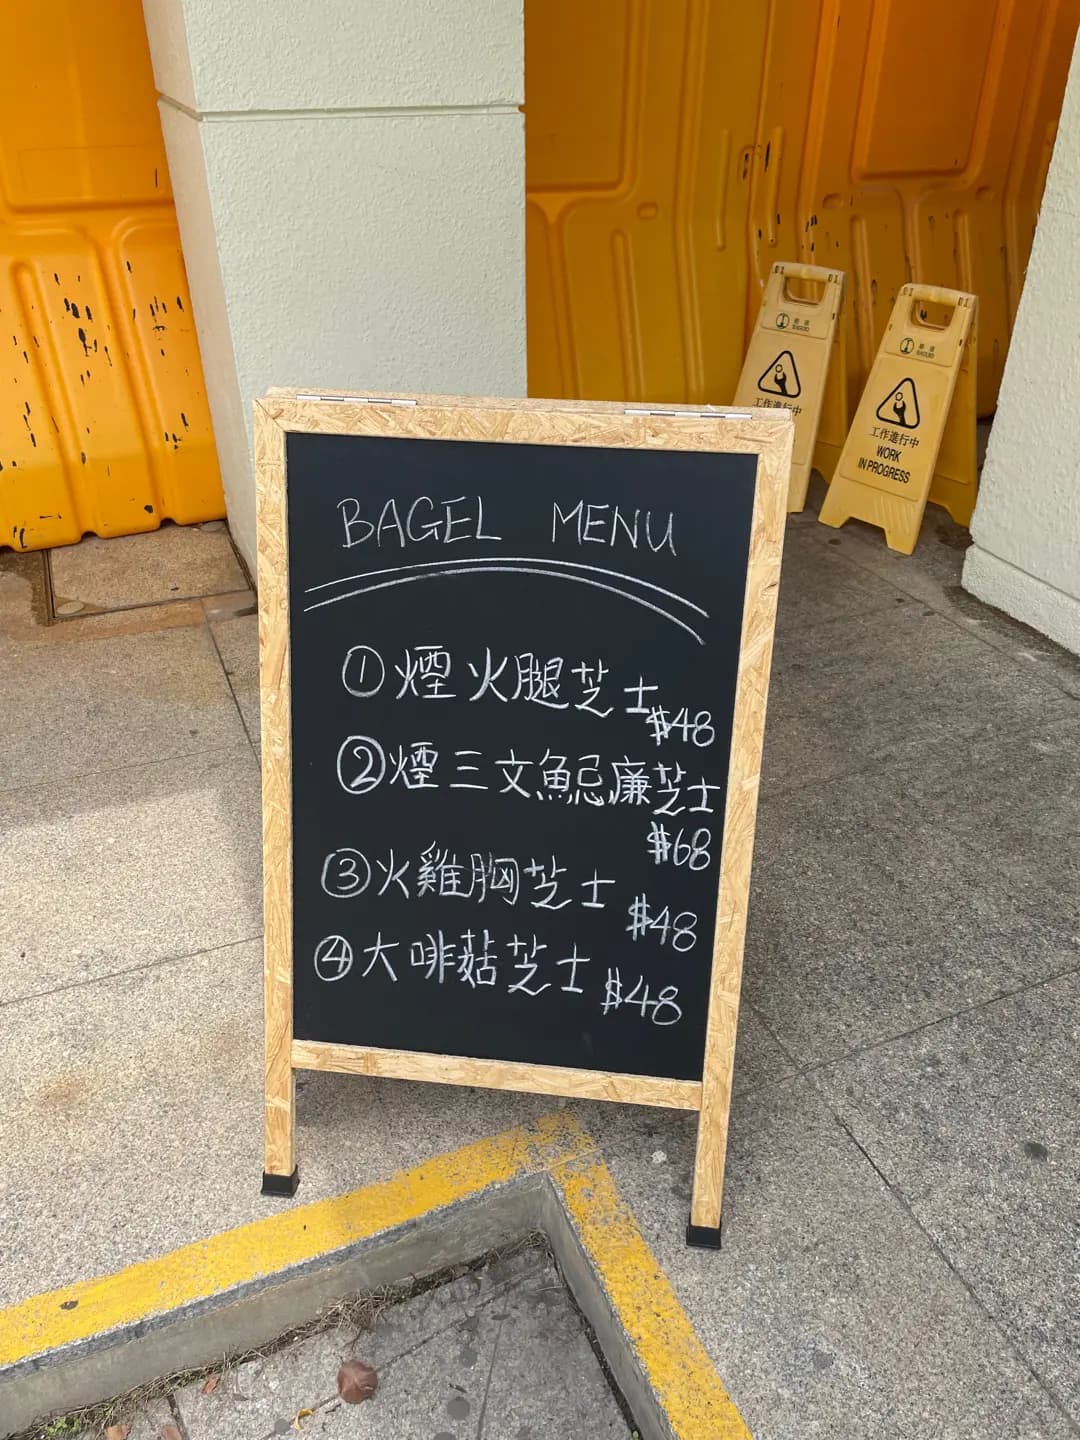 BAGEL MENU
①煙火腿芝士
$48
②煙三文魚忌廉芝士
$68
③火雞胸芝士
$48
④大啡菇芝士 $48
工作進行中
工作進行中
WORK
IN PROGRESS